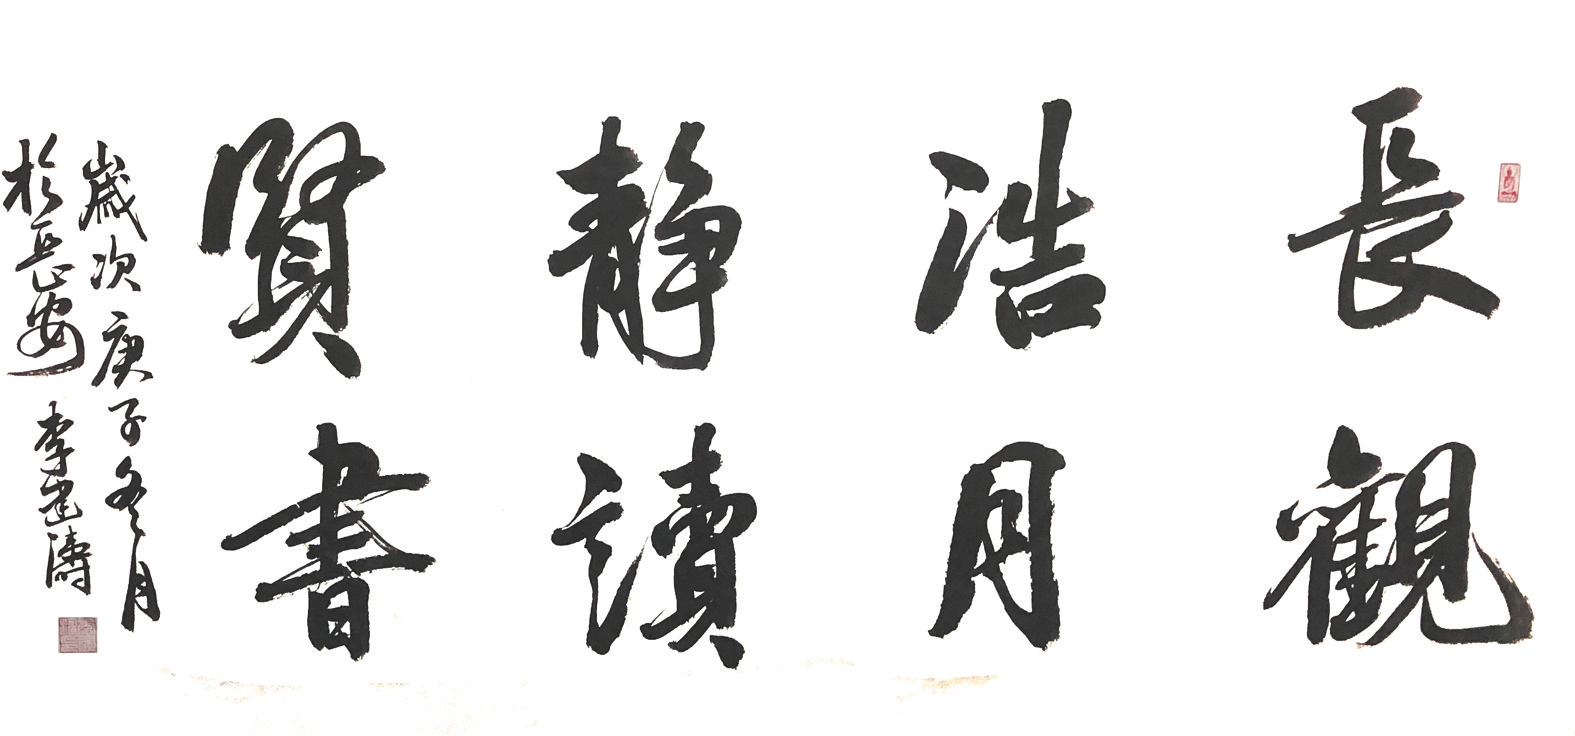 長觀
浩月
静讀
賢書
歲次庚子冬月
於長安 李建濤